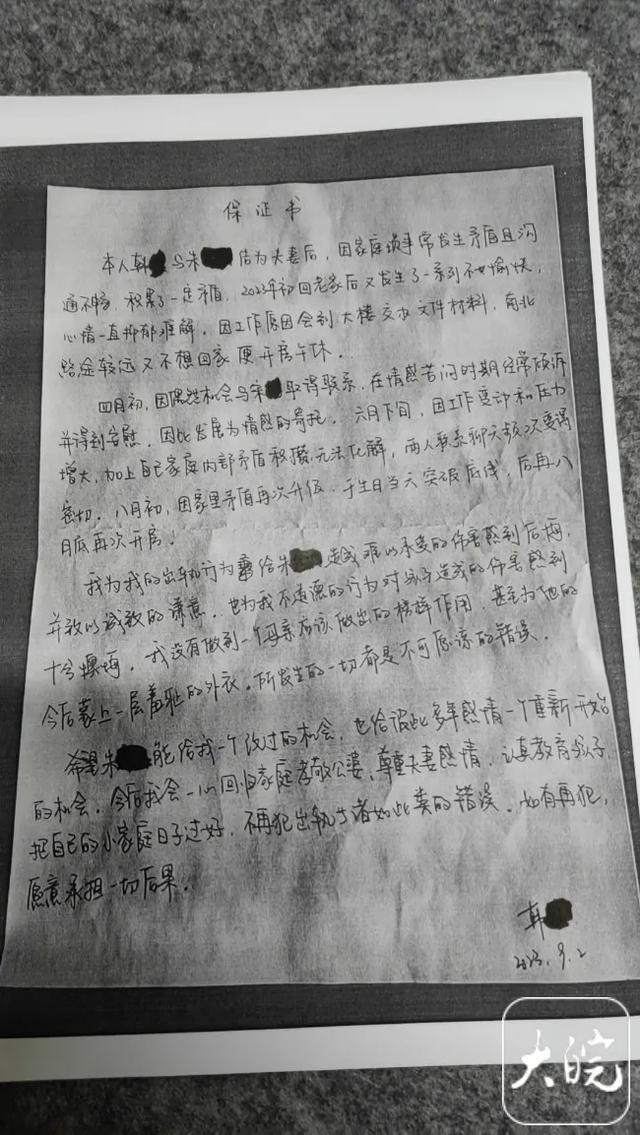 保证书
本人韩 与朱 结为夫妻后，因家庭琐事常发生矛盾且沟
通不畅，积累了一定矛盾，2023年初回老家后又发生了一系列不愉快，
心情一直抑郁难解。因工作原因会到大楼交办文件材料，南北
路途较远又不想回家便开房午休。
四月初，因偶然机会与宋 取得联系，在情感苦闷时期经常倾诉
并得到安慰，因此发展为情感的寄托。六月下旬，因工作变动和压力
增大，加上自己家庭内部矛盾积攒，无法化解，两人联系聊天频次变得
密切。八月初，因家里矛盾再次升级，于生日当天突破底线，后再八
月底再次开房。
我为我的出轨行为 给朱 造成难以承受的伤害感到后悔，
并致以诚致的谦意，也为我不道德的行为对孩子造成的伤害感到
十分懊悔，我没有做到一个母亲应该做出的榜样作用，甚至为他的
今后蒙上一层羞耻的外衣。所发生的一切都是不可原谅的错误。
希望朱 能给我一个改过的机会，也给彼此多年感情一个重新开始
的机会，今后我会一心回归家庭孝敬公婆，尊重夫妻感情，认真教育孩子，
把自己的小家庭日子过好，不再犯出轨或者如此类的错误，如有再犯，
愿意承担一切后果。
韩
2023.9.2
大皖